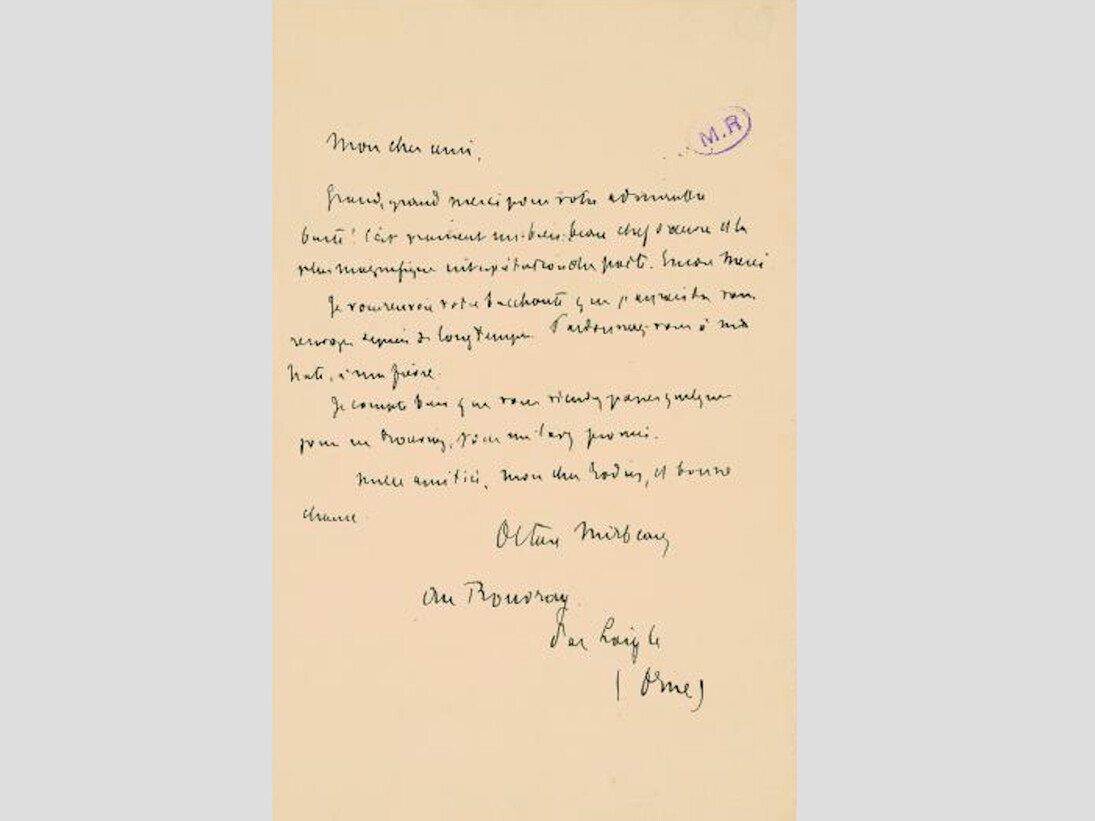 M.R
Mon cher ami,
Grand, grand merci pour votre admirable
buste! C'est vraiment un bien beau chef d'œuvre et la
plus magnifique interprétation du poète. Encore merci
Je vous renvoie votre bacchante que j'aurais dû vous
renvoyer depuis longtemps. Pardonnez-vous à ma
hâte, à ma fièvre.
Je compte bien que vous viendrez passer quelques
jours au Rouvray, vous me l'avez promis.
Mille amitiés, mon cher Rodin, et bonne
chance
Octave Mirbeau
Au Rouvray
Par Laigle
(Orne)